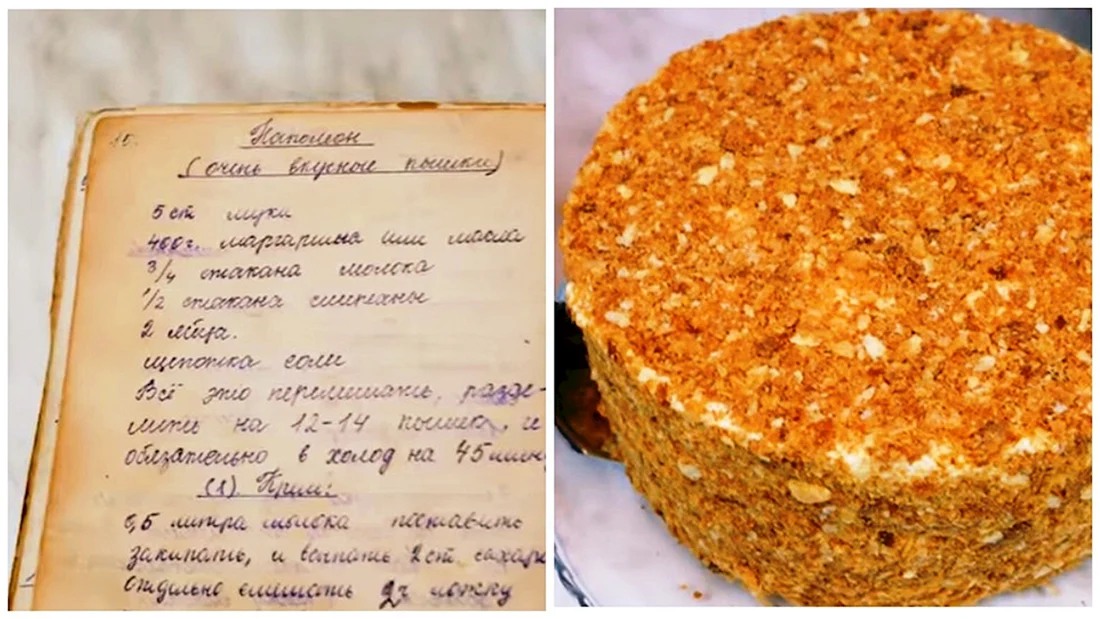 15.
Наполеон
(очень вкусные пышки)
5 ст муки
400г. маргарина или масла
3/4 стакана молока
1/2 стакана сметаны
2 яйца.
щепотка соли
Всё это перемешать, разде-
лить на 12-14 пышек, и
обязательно в холод на 45 мин
(1). Крем:
0,5 литра молока поставить
закипать, и всыпать 2 ст. сахара
отдельно смешать 2 ч ложку